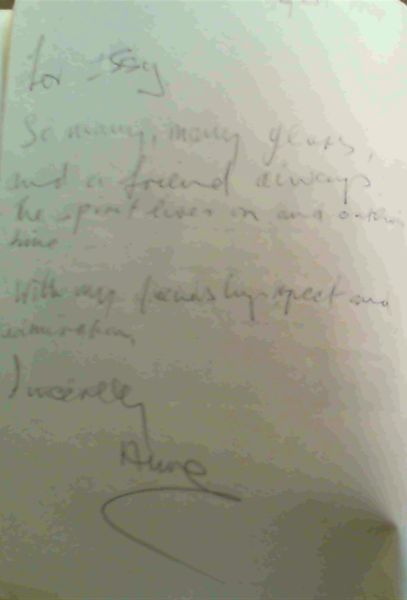 For Issy
So many, many years,
and a friend always
the spirit lives on and
time
With my friendship respect and
admiration,
Sincerely
Anne